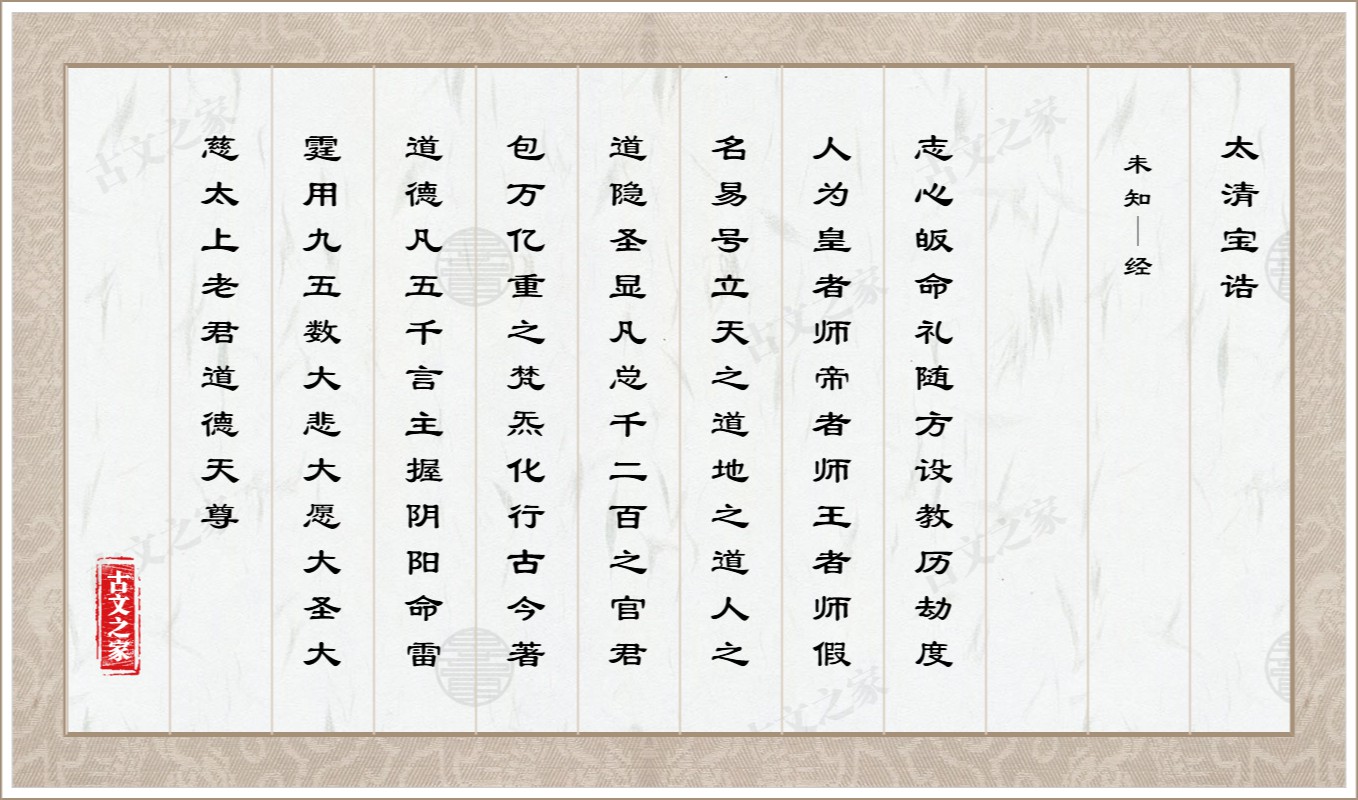 太清宝诰
未知—经
志心皈命礼随方设教历劫度
人为皇者师帝者师王者师假
名易号立天之道地之道人之
道隐圣显凡总千二百之官君
包万亿重之梵炁化行古今著
道德凡五千言主握阴阳命雷
霆用九五数大悲大愿大圣大
慈太上老君道德天尊
古文之家